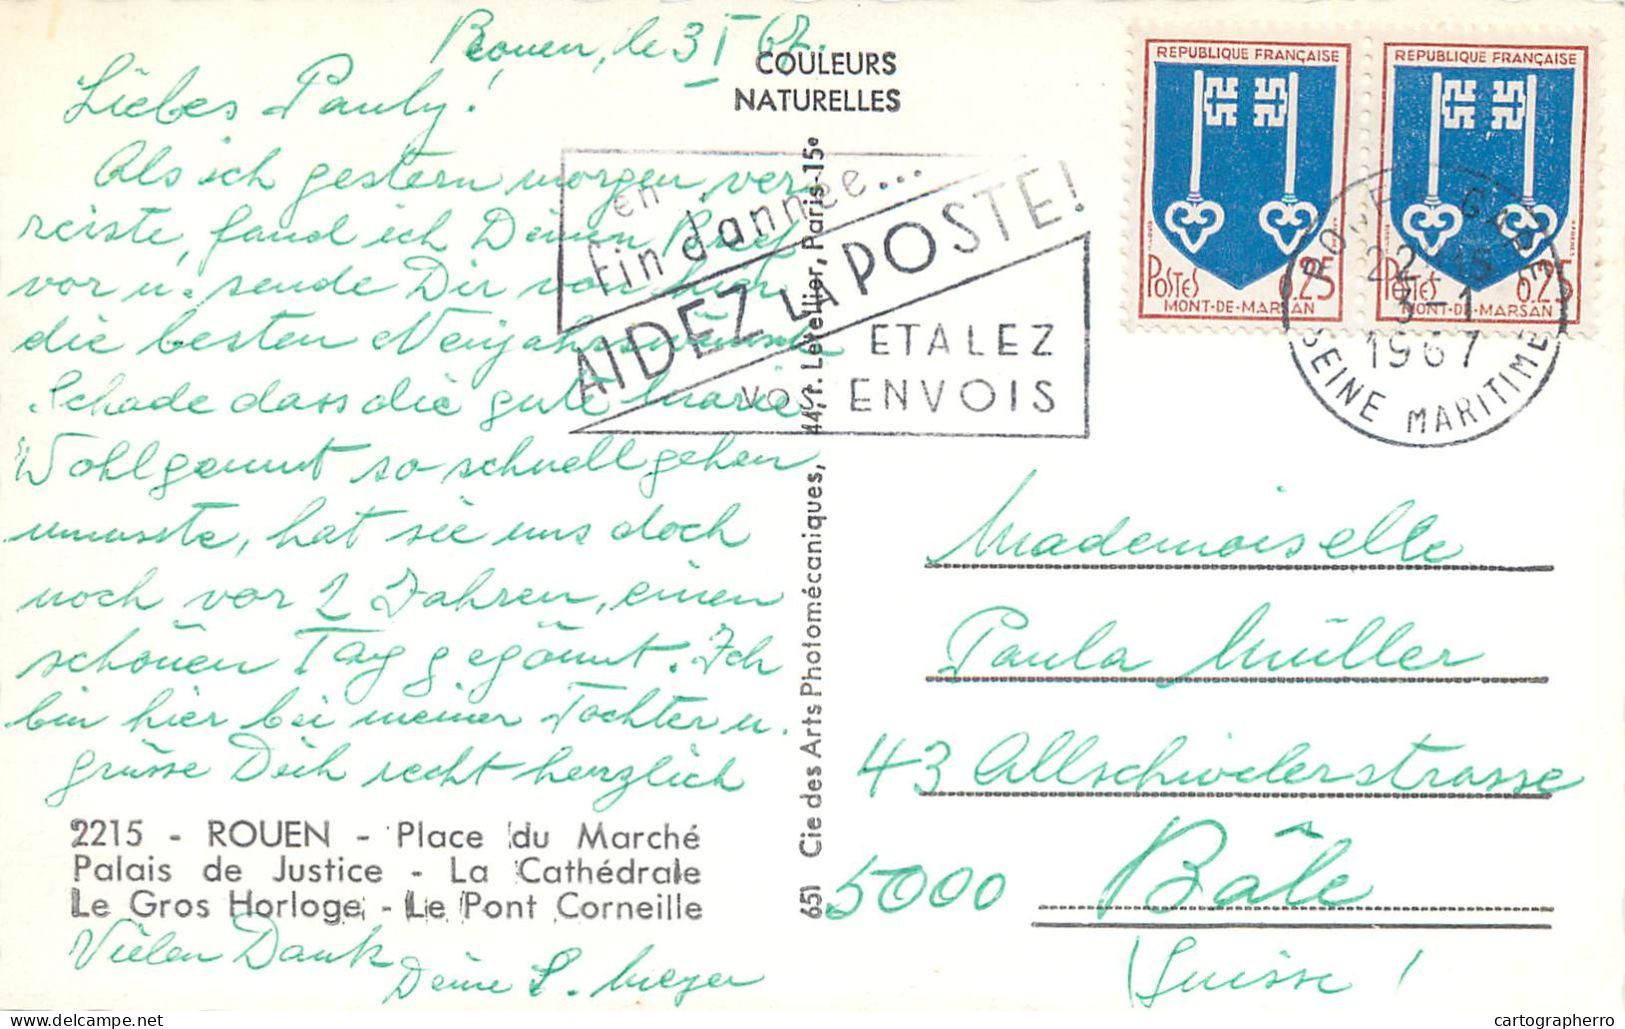 Rouen, le 3 I 67.
Liebes Pauly!
Als ich gestern morgen, ver-
reiste, fand ich Deinen Brief
vor u. sende Dir von hier
die besten Neujahrswünsche
Schade dass die gute Marie
Wohlgemut so schnell gehen
musste, hat sie uns doch
noch vor 2 Jahren, einen
schönen Tag gegönnt. Ich
bin hier bei meiner Tochter u.
grüsse Dich recht herzlich
2215 - ROUEN - Place du Marché
Palais de Justice - La Cathédrale
Le Gros Horloge - Le Pont Corneille
Vielen Dank
Deine S. Meyer
COULEURS
NATURELLES
651 Cie des Arts Photomécaniques, 44, r. Letellier, Paris-15e
en
fin d'année...
AIDEZ LA POSTE!
ETALEZ
VOS ENVOIS
REPUBLIQUE FRANÇAISE
POSTES 0.25
MONT-DE-MARSAN
REPUBLIQUE FRANÇAISE
POSTES 0.25
MONT-DE-MARSAN
ROUEN GARE
3-1
1967
SEINE MARITIME
Mademoiselle
Paula Müller
43 Allschwilerstrasse
5000 Bâle
(Suisse)
cartographerro